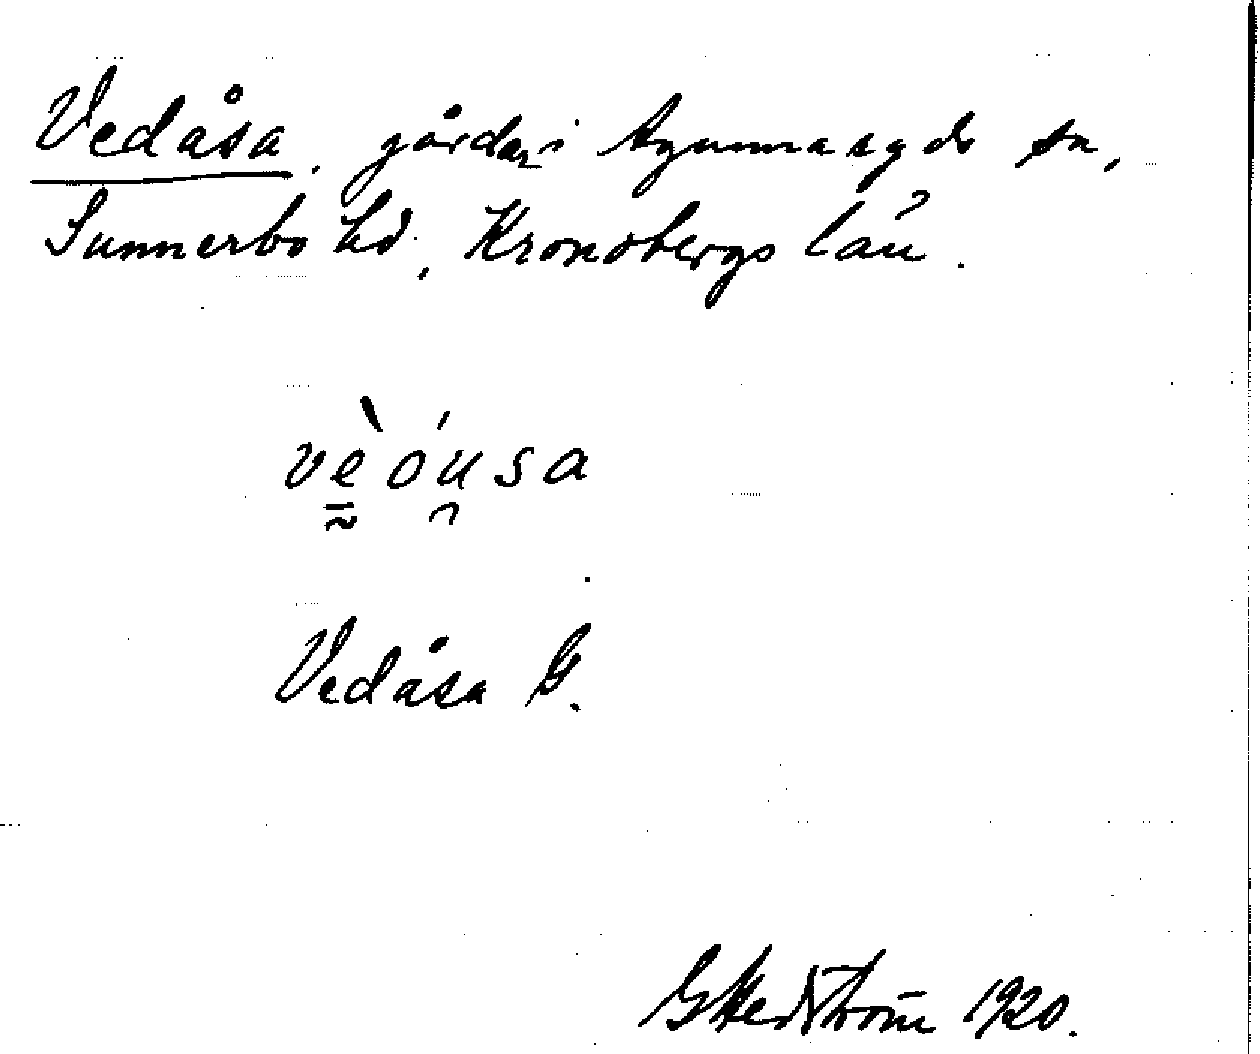 Vedåsa, gårdar i Agunnaryds sn,
Sunnerbo hd, Kronobergs län.
vè óusa
Vedåsa G.
G Hedström 1920.